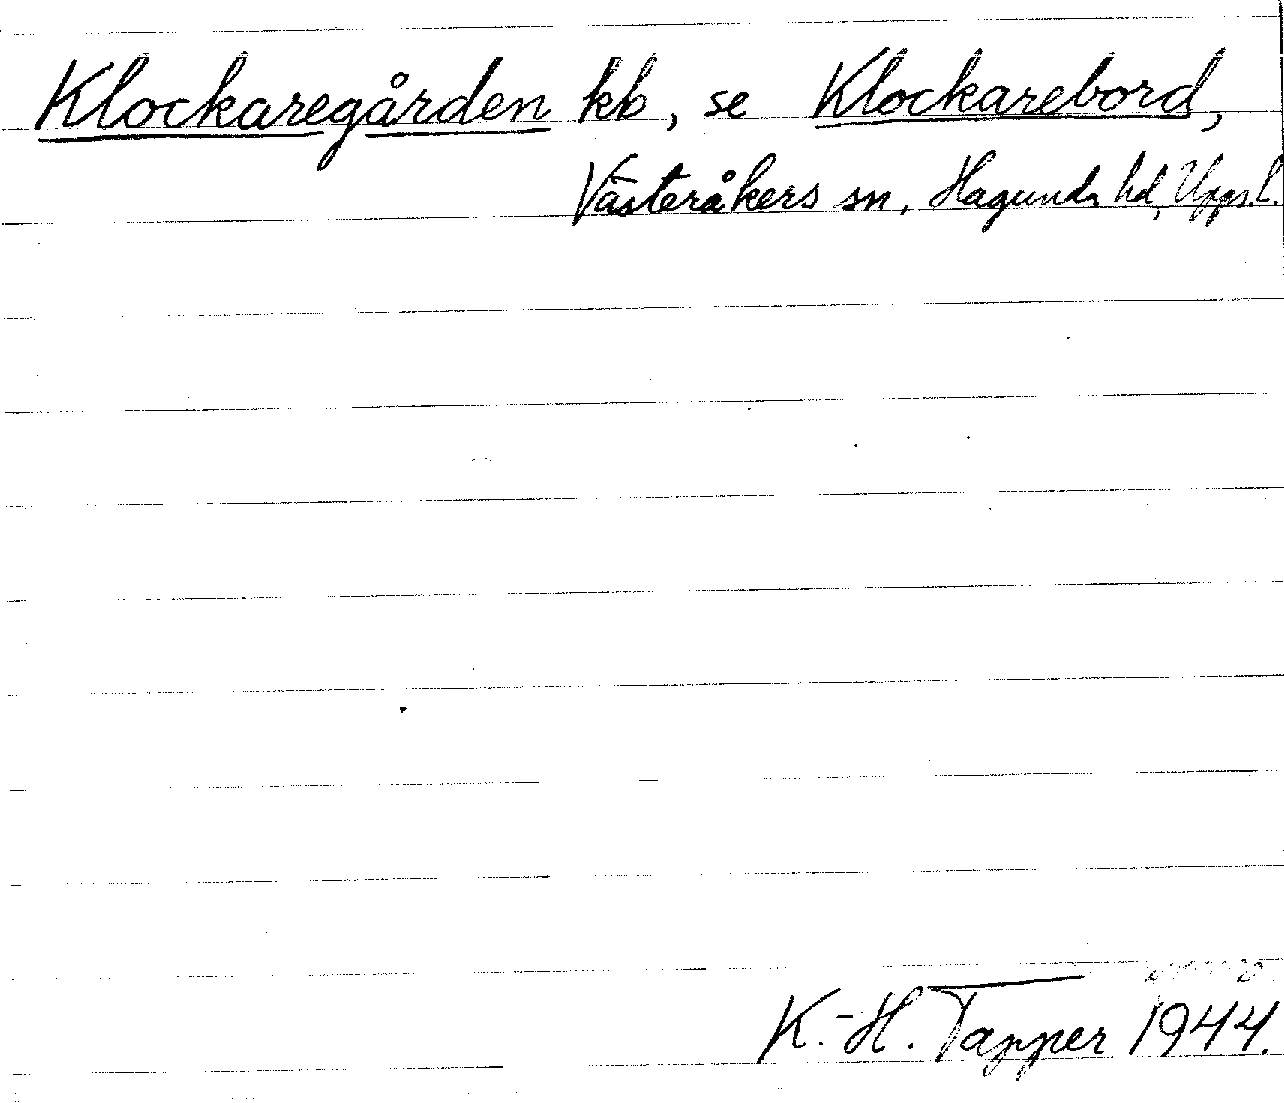 Klockaregården kb, se Klockarebord,
Västeråkers sn, Hagunda hd, Upps. l.
K.-H. Tapper 1944.